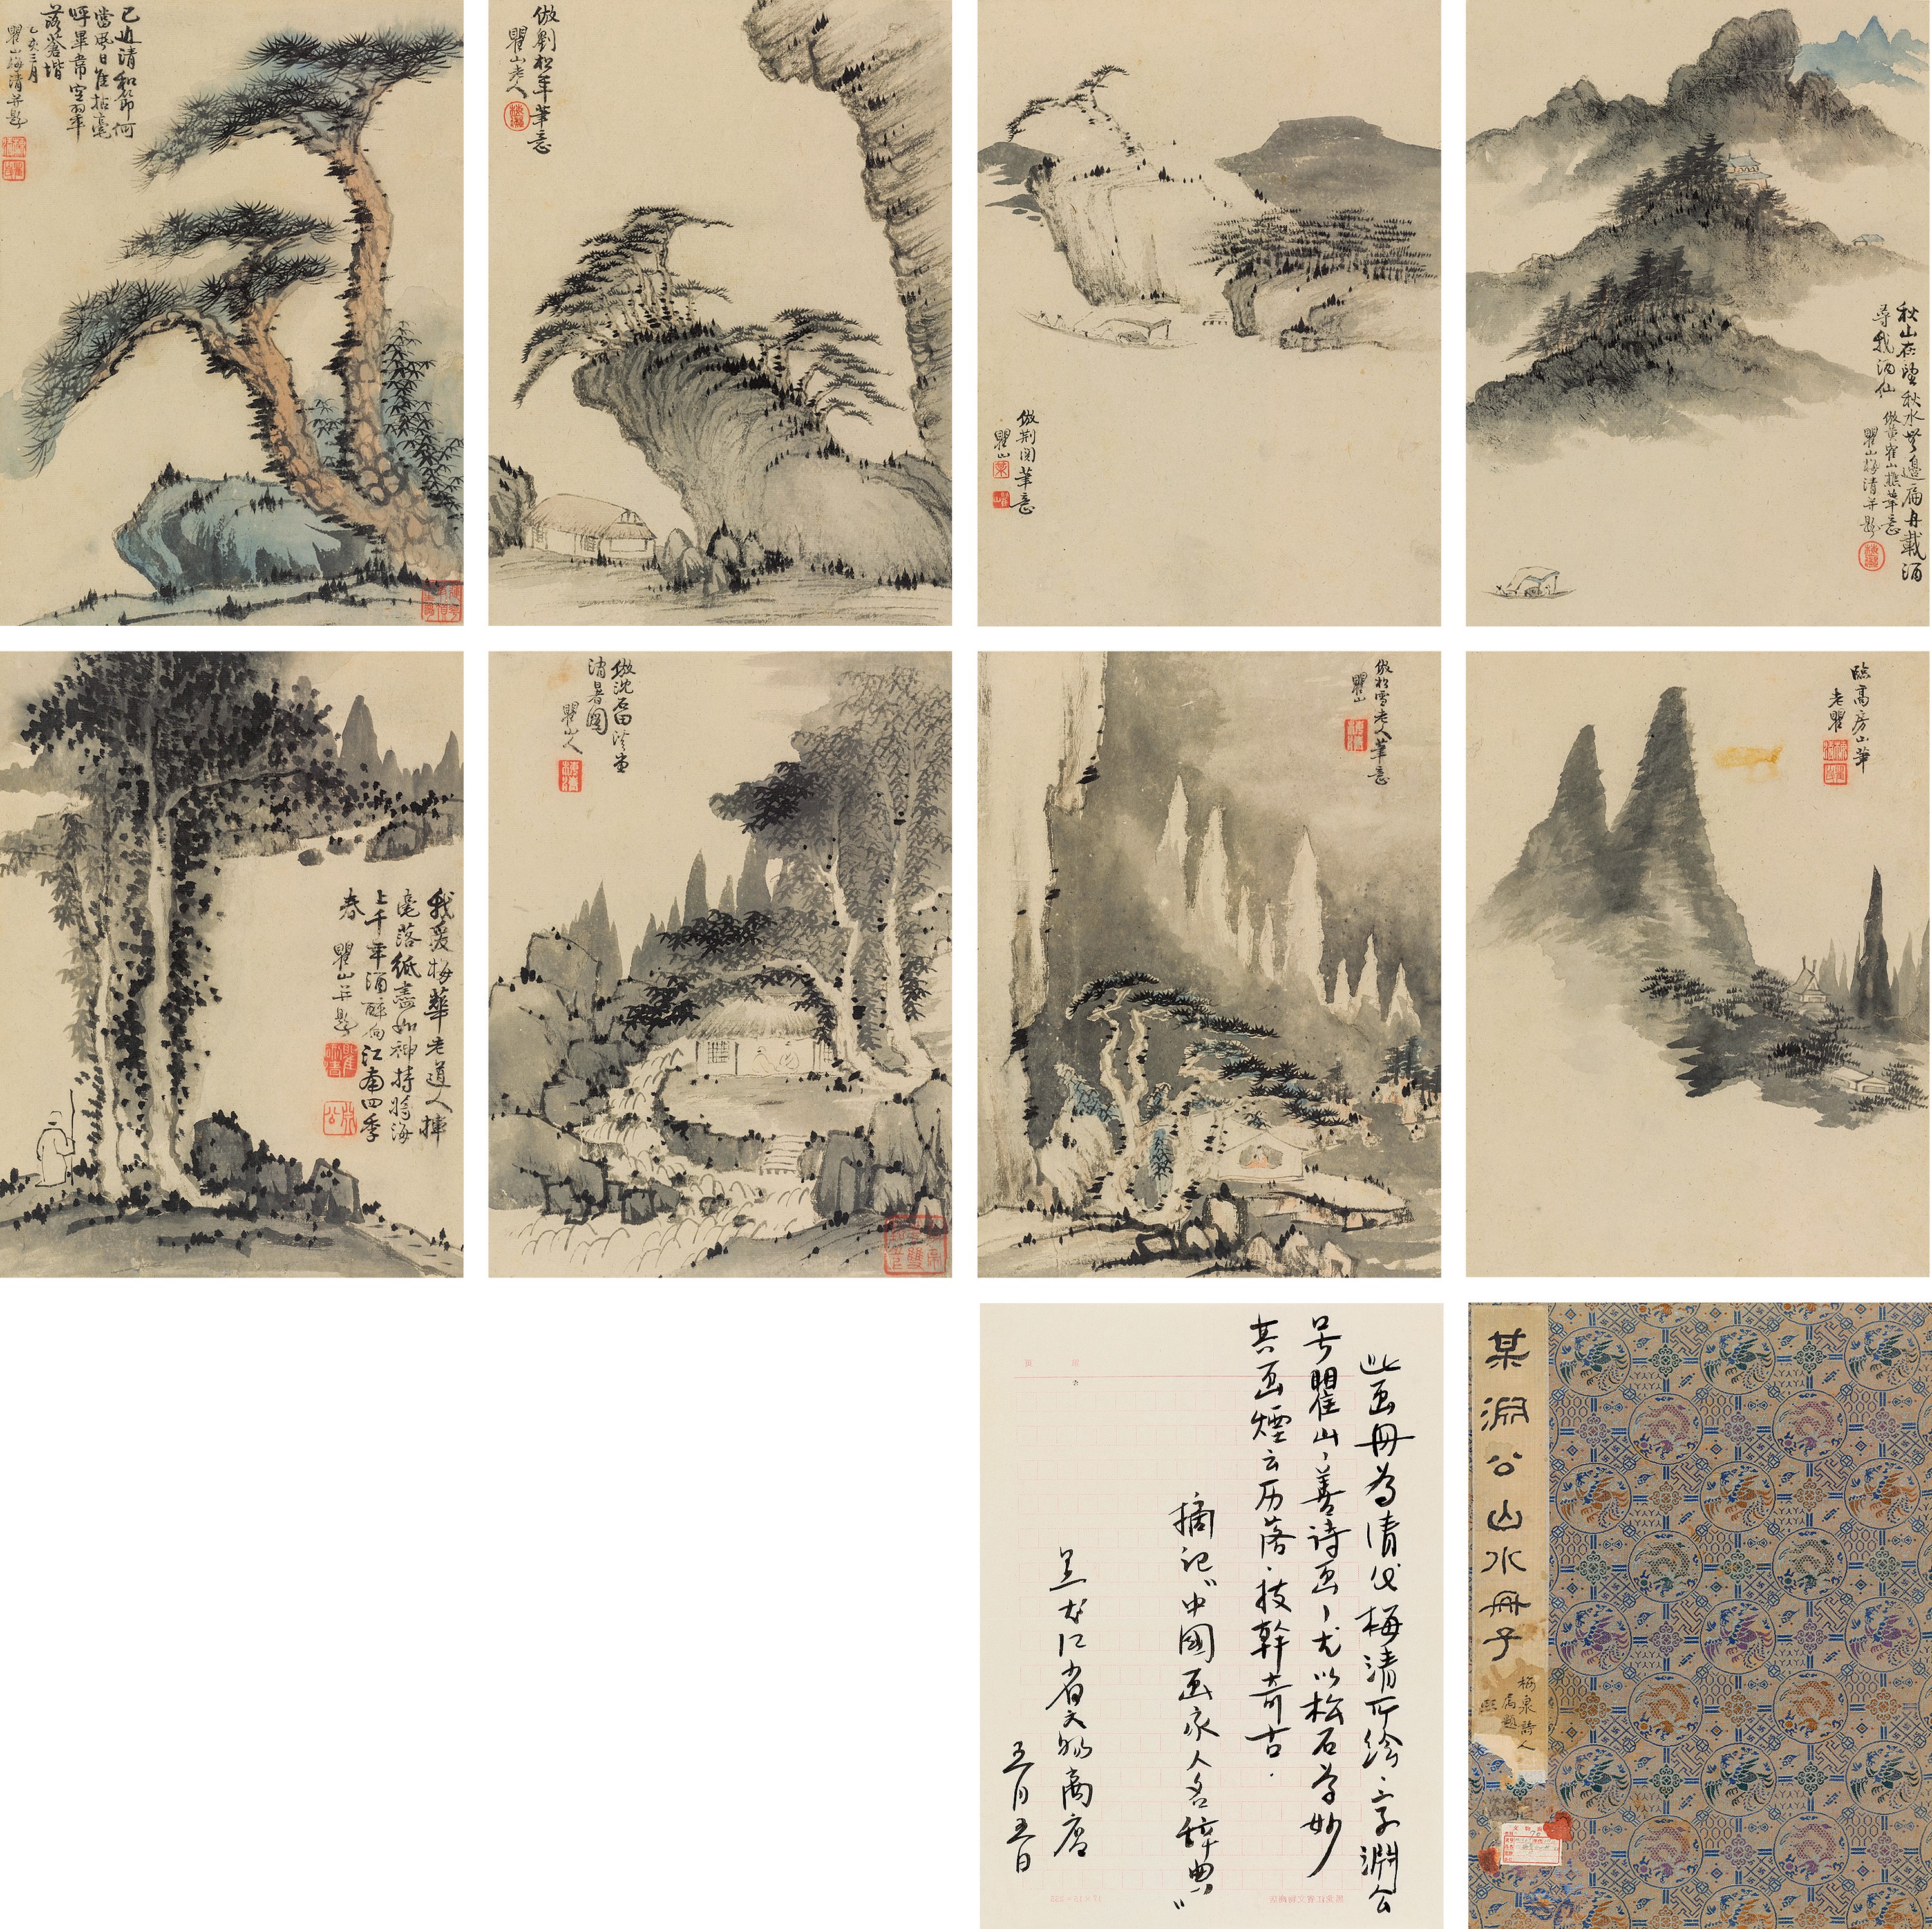 已近清和節何
當風日隹拈毫
呼畢常空翠
落蒼堦
乙亥三月
瞿山梅清并題
倣劉松年筆意
瞿山老人
倣荆関筆意
瞿山
秋山在望秋水無邊扁舟載酒
尋我酒仙
倣黃崔山樵筆意
瞿山梅清并題
我愛梅華老道人揮
毫落紙盡如神持將海
上千年酒醉向江南四季
春
瞿山并題
倣沈石田溪堂
消暑圖
瞿山人
倣松雪老人筆意
瞿山
臨高房山筆
老瞿
此画册为清代梅清所绘，字淵公
号瞿山，善诗画，尤以松石为妙
其画煙云历落，枝幹奇古．
摘记“中國画家人名辞典”
黑龙江省文物商店
五月五日
某淵公山水冊子
梅泉詩人
屬題
熙